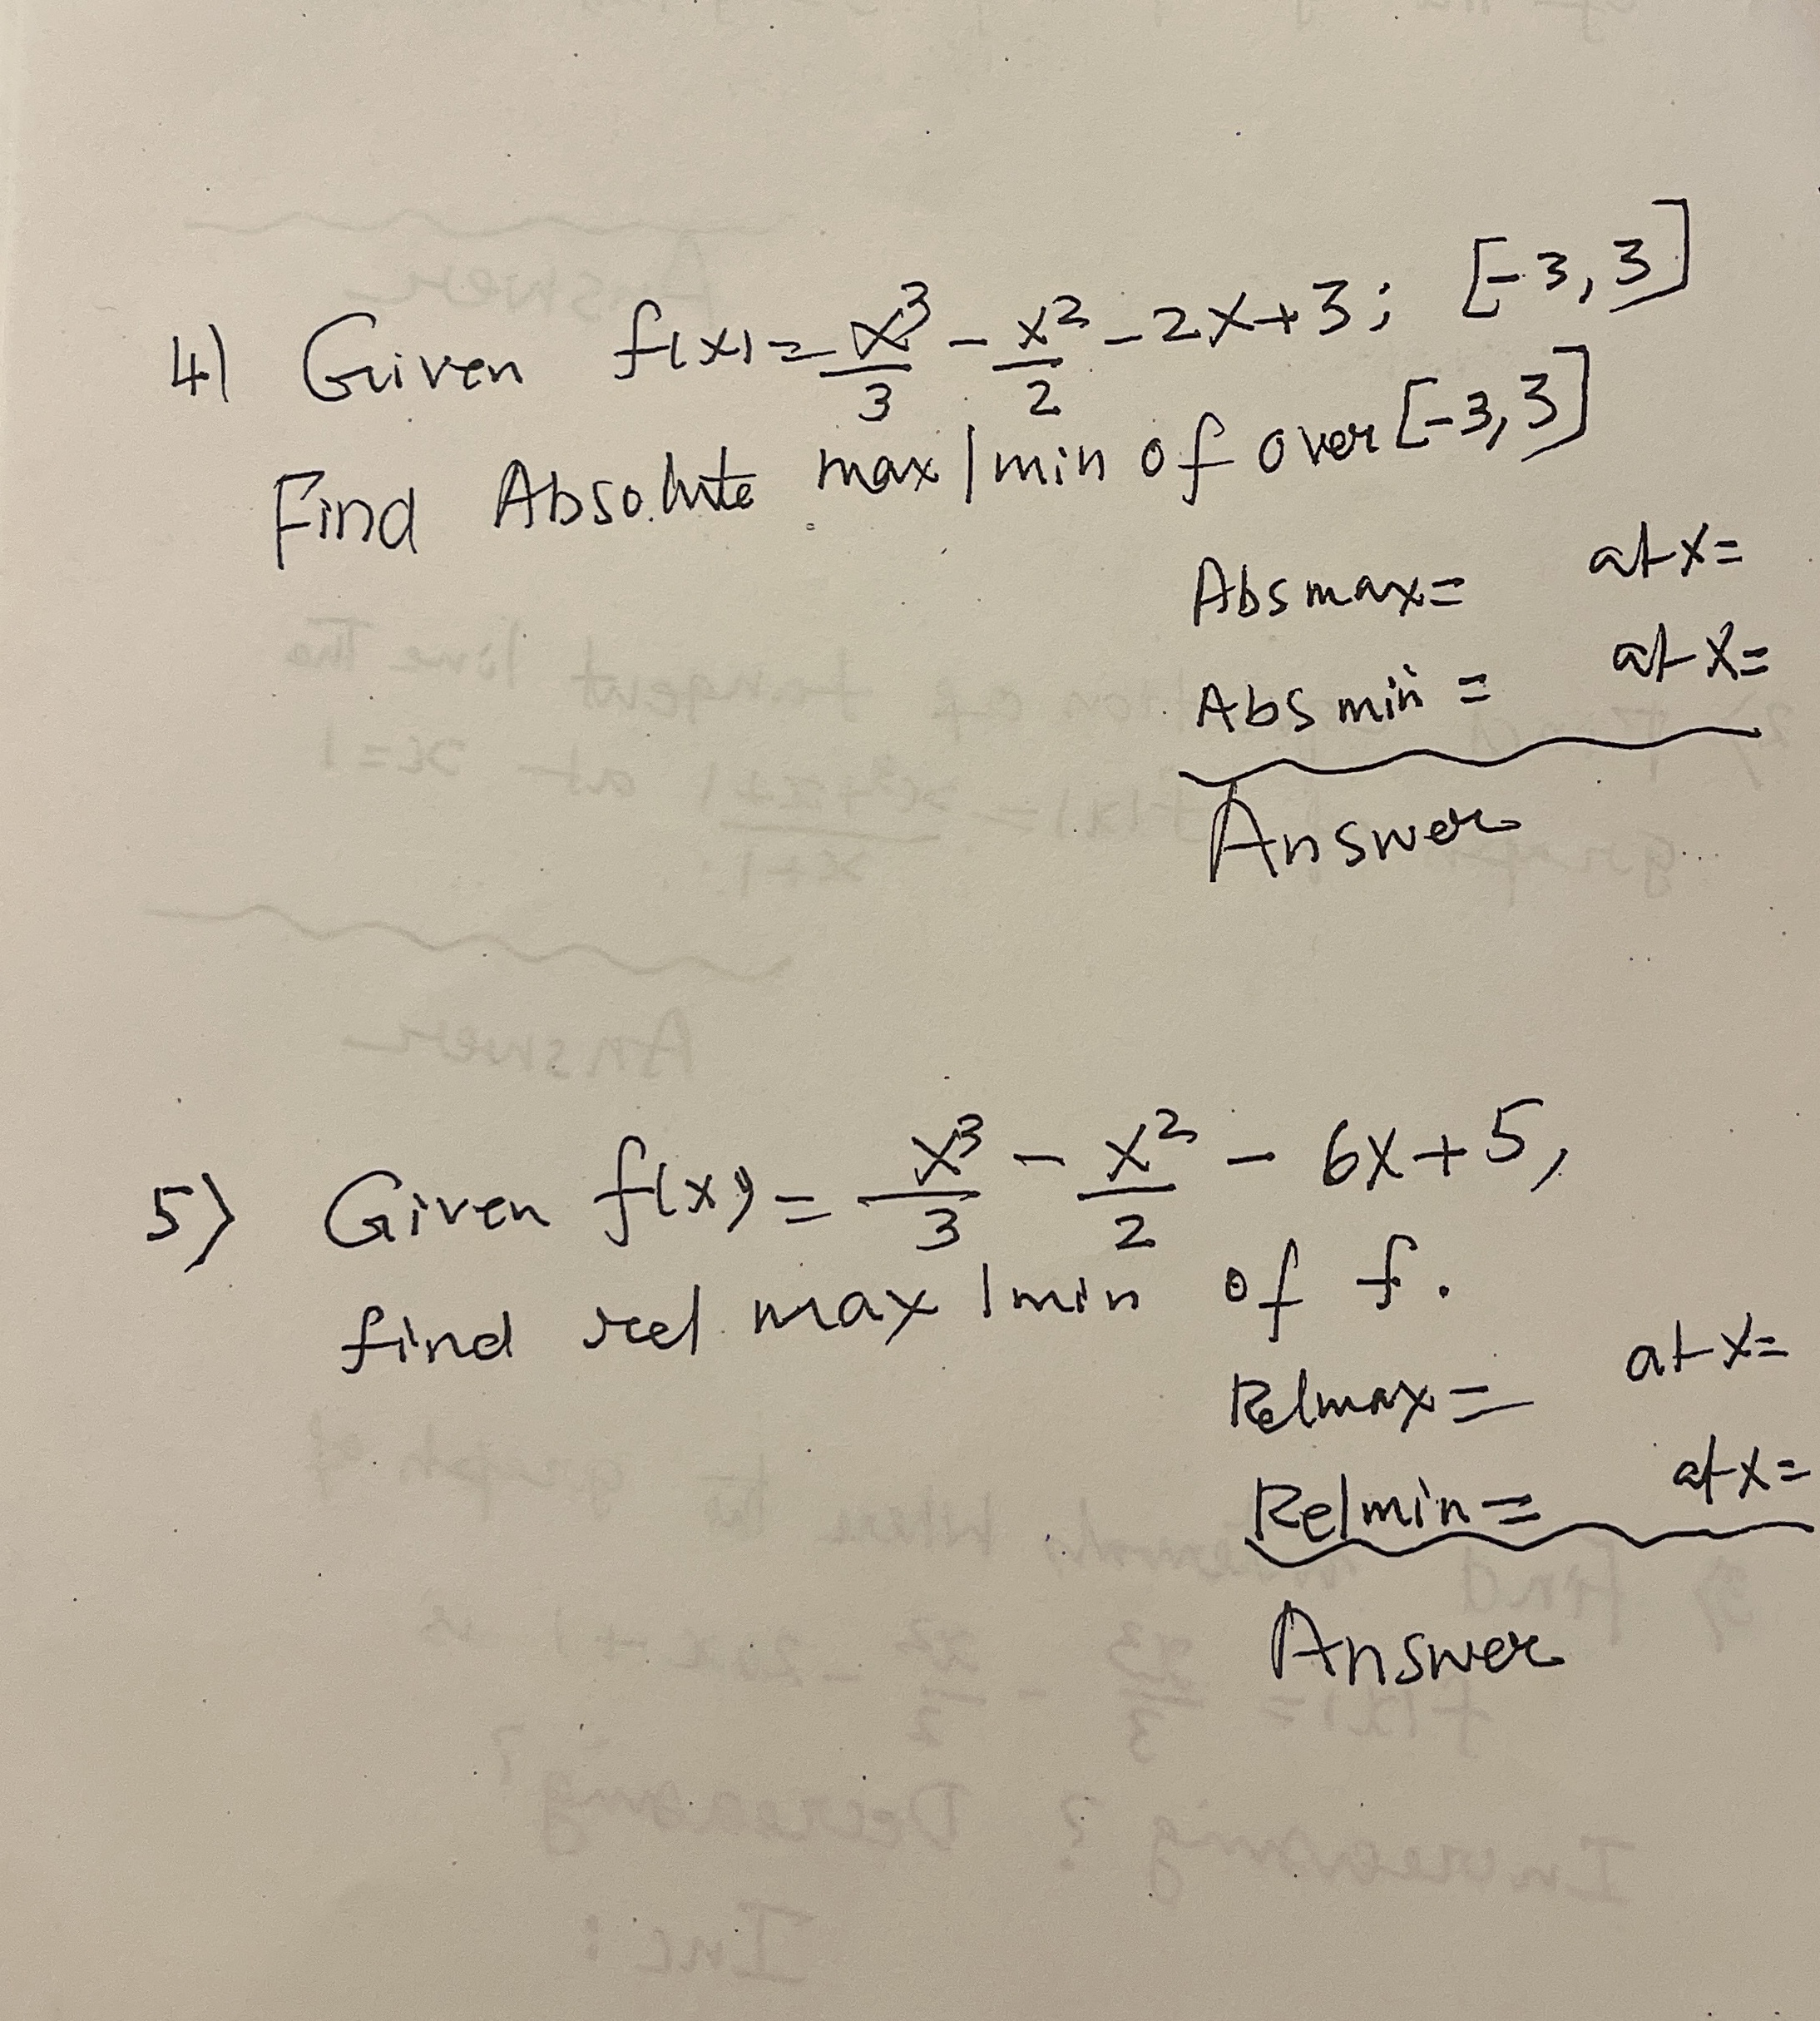 4) Given f(x) = x³/3 - x²/2 - 2x + 3; [-3, 3]
Find Absolute max / min of over [-3, 3]
Abs max = at x =
Abs min = at x =
Answer
5) Given f(x) = x³/3 - x²/2 - 6x + 5,
find rel max / min of f.
Rel max = at x =
Rel min = at x =
Answer